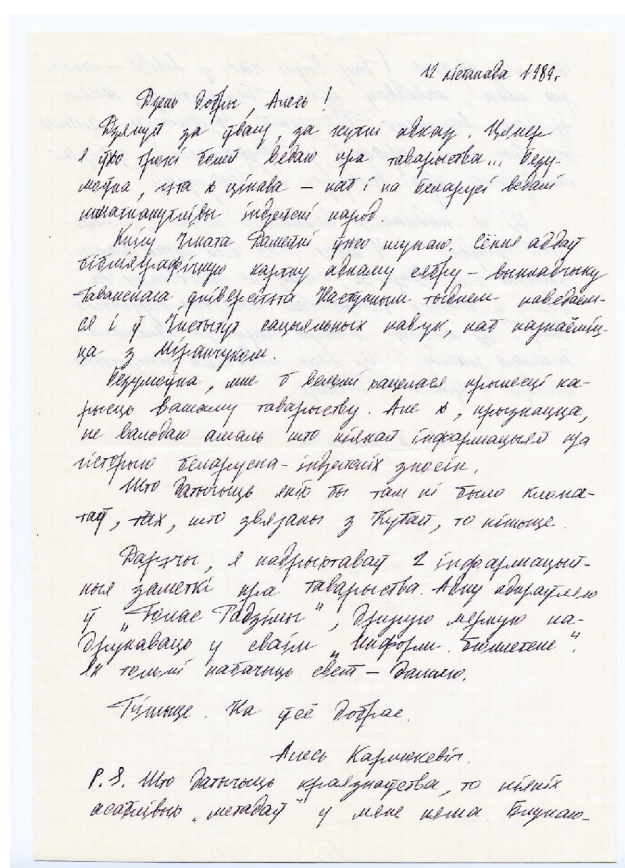 12 лістапада 1989г.
Дзень добры, Алесь!
Дзякуй за ўвагу, за хуткі адказ. Цяпер
я ўжо трохі болей ведаю пра таварыства... Безу-
моўна, гэта ж цікава – каб і на Беларусі ведалі
шматпакутлівы індзейскі народ.
Кнігу Ігната Дамейкі ўжо шукаю. Сёння аддаў
бібліяграфічную картку аднаму сябру – выкладчыку
Гаванскага ўніверсітэта. Наступным тыднем наведаем-
ся і ў Інстытут сацыяльных навук, каб пазнаёміц-
ца з Міранчукем.
Безумоўна, мне б вельмі хацелася прынесці ка-
рысць вашаму таварыству. Але ж, прызнацца,
не валодаю амаль што ніякай інфармацыяй пра
гісторыю беларуска-індзейскіх зносін.
Што датычыць якіх бы там ні было клопа-
таў, тых, што звязаны з Кубай, то пішыце.
Дарэчы, я падрыхтаваў 2 інфармацый-
ныя заметкі пра таварыства. Адну адпраўляю
ў „Голас Радзімы", другую мяркую на-
друкаваць у сваім „Информ. бюллетене".
Як толькі пабачыць свет – дашлю.
Пішыце. На ўсё добрае.
Алесь Карлюкевіч.
P.S. Што датычыць краязнаўства, то ніякіх
асаблівых „метадаў" у мяне няма. Блукаю-